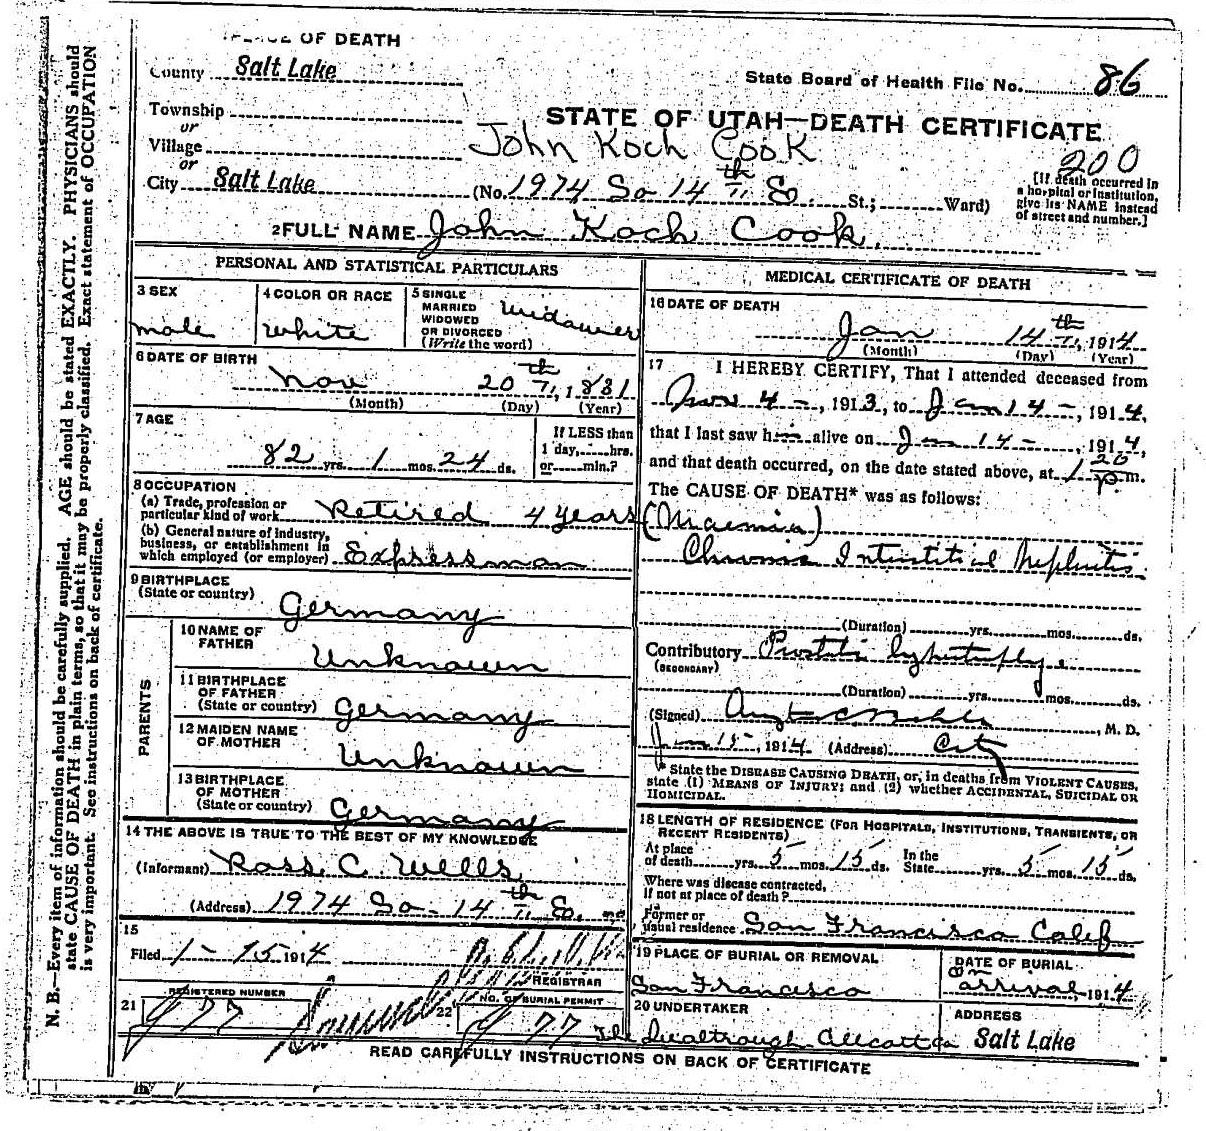 PLACE OF DEATH
County Salt Lake
State Board of Health File No. 86
Township
or
STATE OF UTAH—DEATH CERTIFICATE
Village
John Koch Cook
or
200
City Salt Lake (No. 1974 So 14th E. St.; Ward)
[If death occurred in
a hospital or institution,
give its NAME instead
of street and number.]
2 FULL NAME John Koch Cook.
PERSONAL AND STATISTICAL PARTICULARS
3 SEX
male
4 COLOR OR RACE
White
5 SINGLE
MARRIED
WIDOWED
OR DIVORCED
(Write the word)
Widower
6 DATE OF BIRTH
Nov 20th, 1831
(Month) (Day) (Year)
7 AGE
82 yrs. 1 mos. 24 ds.
If LESS than
1 day, hrs.
or min.?
8 OCCUPATION
(a) Trade, profession or
particular kind of work Retired 4 years
(b) General nature of industry,
business, or establishment in
which employed (or employer) Expressman
9 BIRTHPLACE
(State or country)
Germany
PARENTS
10 NAME OF
FATHER
Unknown
11 BIRTHPLACE
OF FATHER
(State or country) Germany
12 MAIDEN NAME
OF MOTHER
Unknown
13 BIRTHPLACE
OF MOTHER
(State or country) Germany
14 THE ABOVE IS TRUE TO THE BEST OF MY KNOWLEDGE
(Informant) Ross C. Wells
(Address) 1974 So - 14th E.
15
Filed 1-15 1914
REGISTRAR
21 REGISTERED NUMBER
J 77
22 NO. OF BURIAL PERMIT
J 77
MEDICAL CERTIFICATE OF DEATH
16 DATE OF DEATH
Jan 14th, 1914
(Month) (Day) (Year)
17 I HEREBY CERTIFY, That I attended deceased from
Nov 4 -, 1913, to Jan 14 -, 1914,
that I last saw him alive on Jan 14 -, 1914,
and that death occurred, on the date stated above, at 1 20 P. m.
The CAUSE OF DEATH* was as follows:
(Uraemia)
Chronic Interstitial Nephritis
(Duration) yrs. mos. ds.
Contributory Prostatic hypertrophy
(SECONDARY)
(Duration) yrs. mos. ds.
(Signed) M. D.
Jan 15, 1914 (Address) City
* State the DISEASE CAUSING DEATH, or, in deaths from VIOLENT CAUSES,
state (1) MEANS OF INJURY; and (2) whether ACCIDENTAL, SUICIDAL OR
HOMICIDAL.
18 LENGTH OF RESIDENCE (FOR HOSPITALS, INSTITUTIONS, TRANSIENTS, OR
RECENT RESIDENTS)
At place
of death yrs. 5 mos. 15 ds. In the
State yrs. 5 mos. 15 ds.
Where was disease contracted,
if not at place of death?
Former or
usual residence San Francisco Calif
19 PLACE OF BURIAL OR REMOVAL
San Francisco
DATE OF BURIAL
on
arrival, 1914
20 UNDERTAKER
ADDRESS
Salt Lake
READ CAREFULLY INSTRUCTIONS ON BACK OF CERTIFICATE
N. B.—Every item of information should be carefully supplied. AGE should be stated EXACTLY. PHYSICIANS should
state CAUSE OF DEATH in plain terms, so that it may be properly classified. Exact statement of OCCUPATION
is very important. See instructions on back of certificate.